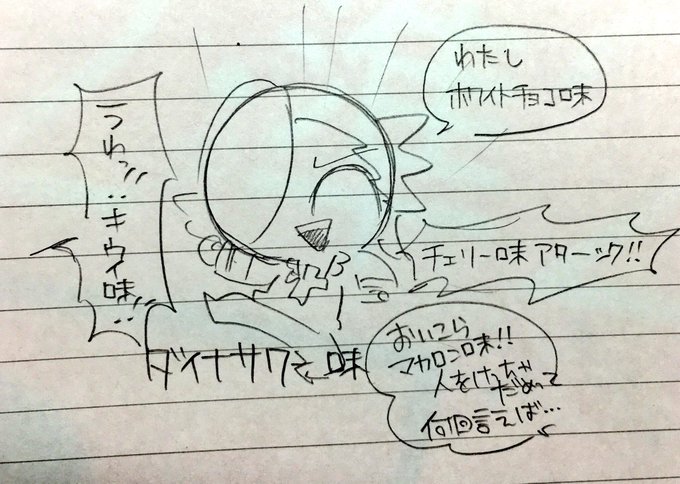 わたし
ホワイトチョコ味
うわっ!!‥キウイ味!!
チェリー味アターック!!
ダイナサワー味
おいこら
マカロン味!!
人をけっちゃ
だめって
何回言えば…